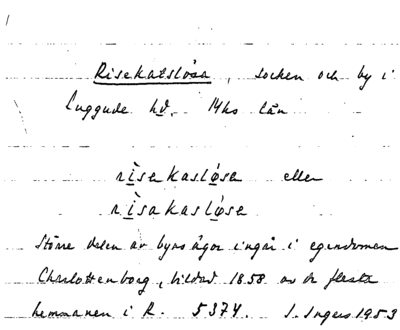 Risekatslösa, socken och by i
Luggude hd. Mhs län
risekasløse eller
risakasløse
Större delen av byns ägor ingår i egendomen
Charlottenborg, bildad 1858 av de flesta
hemmanen i R. 5374. I. Ingers 1953